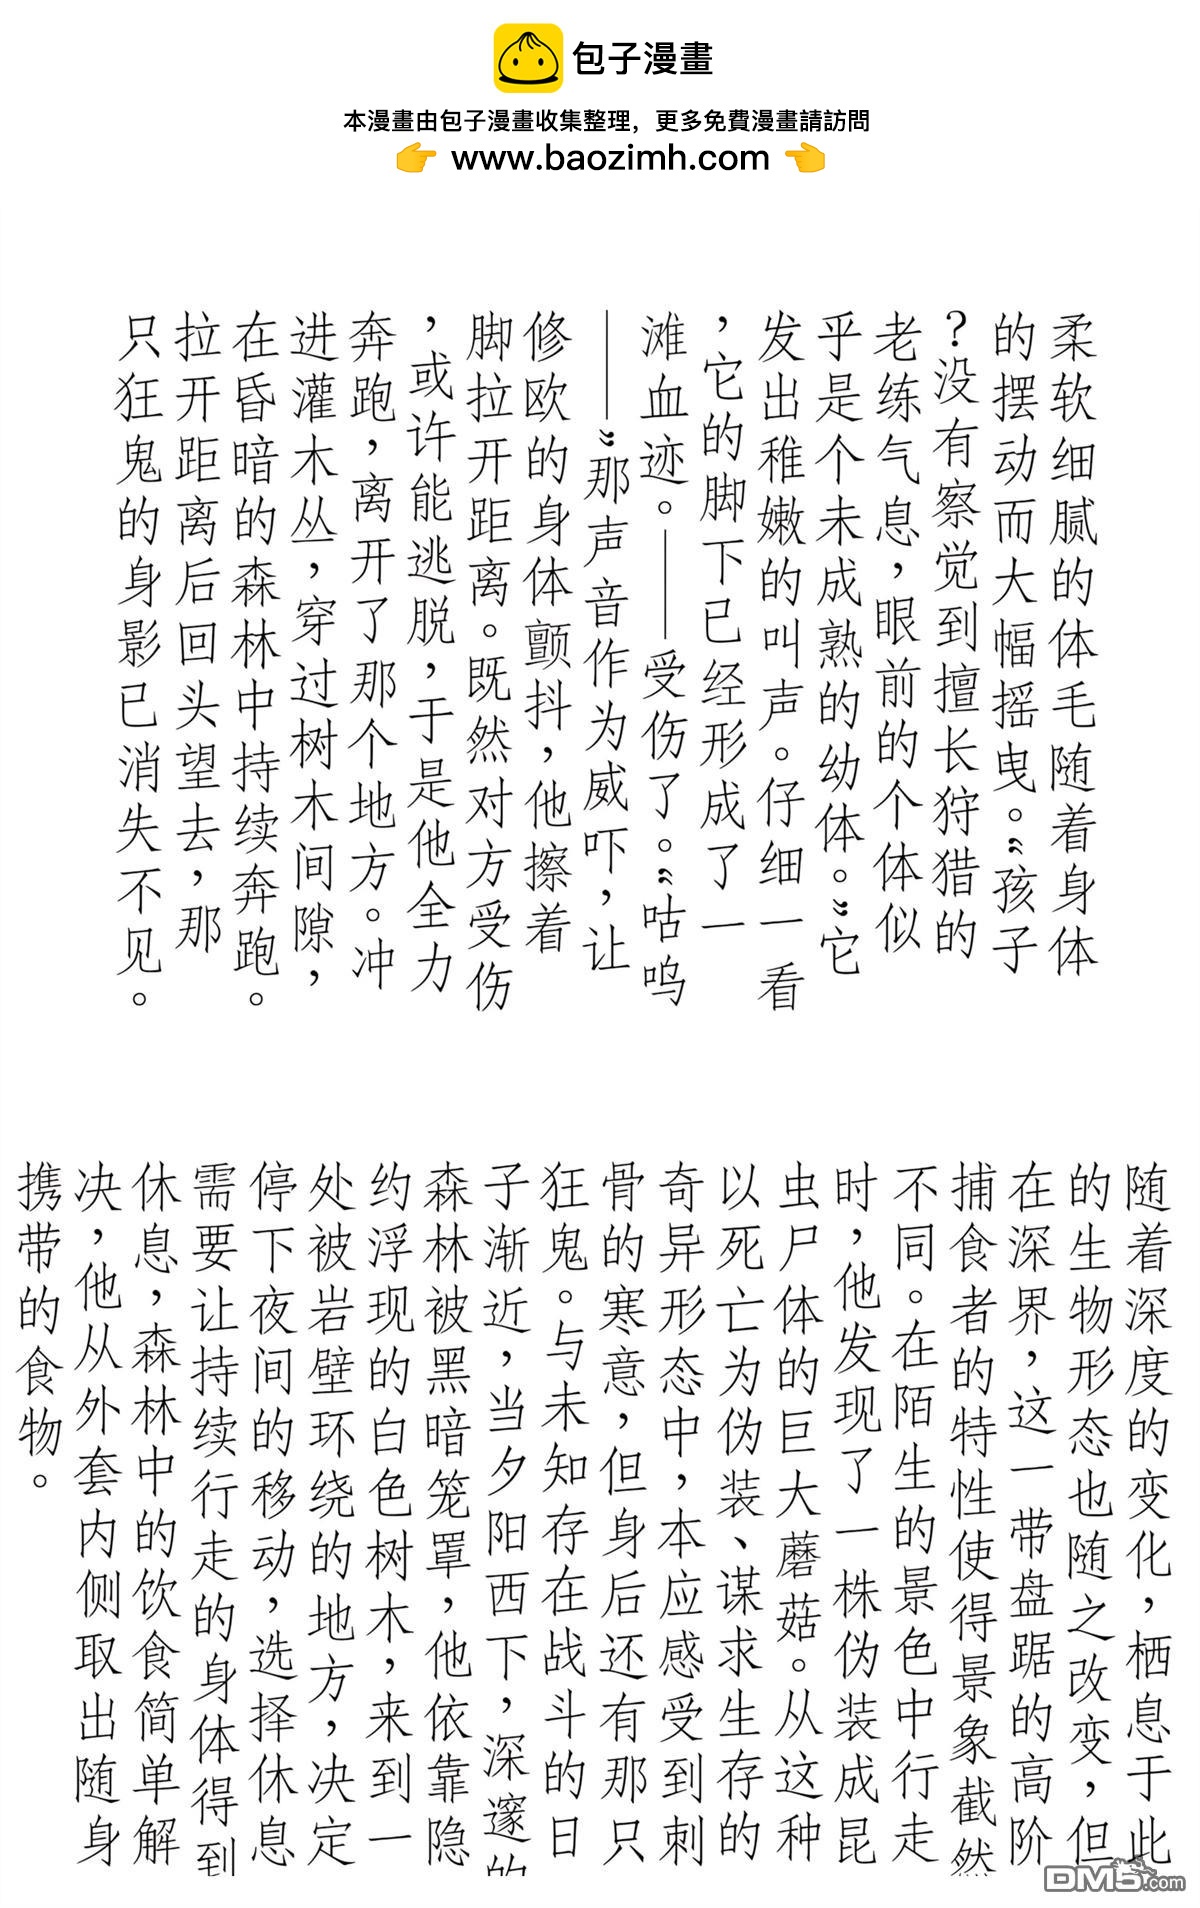 包子漫畫
本漫畫由包子漫畫收集整理，更多免費漫畫請訪問
👉 www.baozimh.com 👈
柔软细腻的体毛随着身体
的摆动而大幅摇曳。“孩子
？没有察觉到擅长狩猎的
老练气息，眼前的个体似
乎是个未成熟的幼体。”它
发出稚嫩的叫声。仔细一看
，它的脚下已经形成了一
滩血迹。——受伤了。“咕呜
——”那声音作为威吓，让
修欧的身体颤抖，他擦着
脚拉开距离。既然对方受伤
，或许能逃脱，于是他全力
奔跑，离开了那个地方。冲
进灌木丛，穿过树木间隙，
在昏暗的森林中持续奔跑。
拉开距离后回头望去，那
只狂鬼的身影已消失不见。
随着深度的变化，栖息于此
的生物形态也随之改变，但
在深界，这一带盘踞的高阶
捕食者的特性使得景象截然
不同。在陌生的景色中行走
时，他发现了一株伪装成昆
虫尸体的巨大蘑菇。从这种
以死亡为伪装、谋求生存的
奇异形态中，本应感受到刺
骨的寒意，但身后还有那只
狂鬼。与未知存在战斗的日
子渐近，当夕阳西下，深邃的
森林被黑暗笼罩，他依靠隐
约浮现的白色树木，来到一
处被岩壁环绕的地方，决定
停下夜间的移动，选择休息
需要让持续行走的身体得到
休息，森林中的饮食简单解
决，他从外套内侧取出随身
携带的食物。
DM5.com